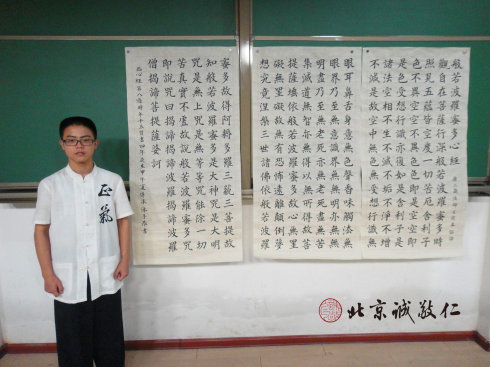 般若波羅蜜多心經
觀自在菩薩行深般若波羅蜜多時
照見五蘊皆空度一切苦厄舍利子
色不異空空不異色色即是空空即
是色受想行識亦復如是舍利子是
諸法空相不生不滅不垢不淨不增
不減是故空中無色無受想行識無
眼耳鼻舌身意無色聲香味觸法無
眼界乃至無意識界無無明亦無無
明盡乃至無老死亦無老死盡無苦
集滅道無智亦無得以無所得故菩
提薩埵依般若波羅蜜多故心無罣
礙無罣礙故無有恐怖遠離顛倒夢
想究竟涅槃三世諸佛依般若波羅
蜜多故得阿耨多羅三藐三菩提故
知般若波羅蜜多是大神咒是大明
咒是無上咒是無等等咒能除一切
苦真實不虛故說般若波羅蜜多咒
即說咒曰揭諦揭諦波羅揭諦波羅
僧揭諦菩提薩婆訶
正氣
北京誠敬仁